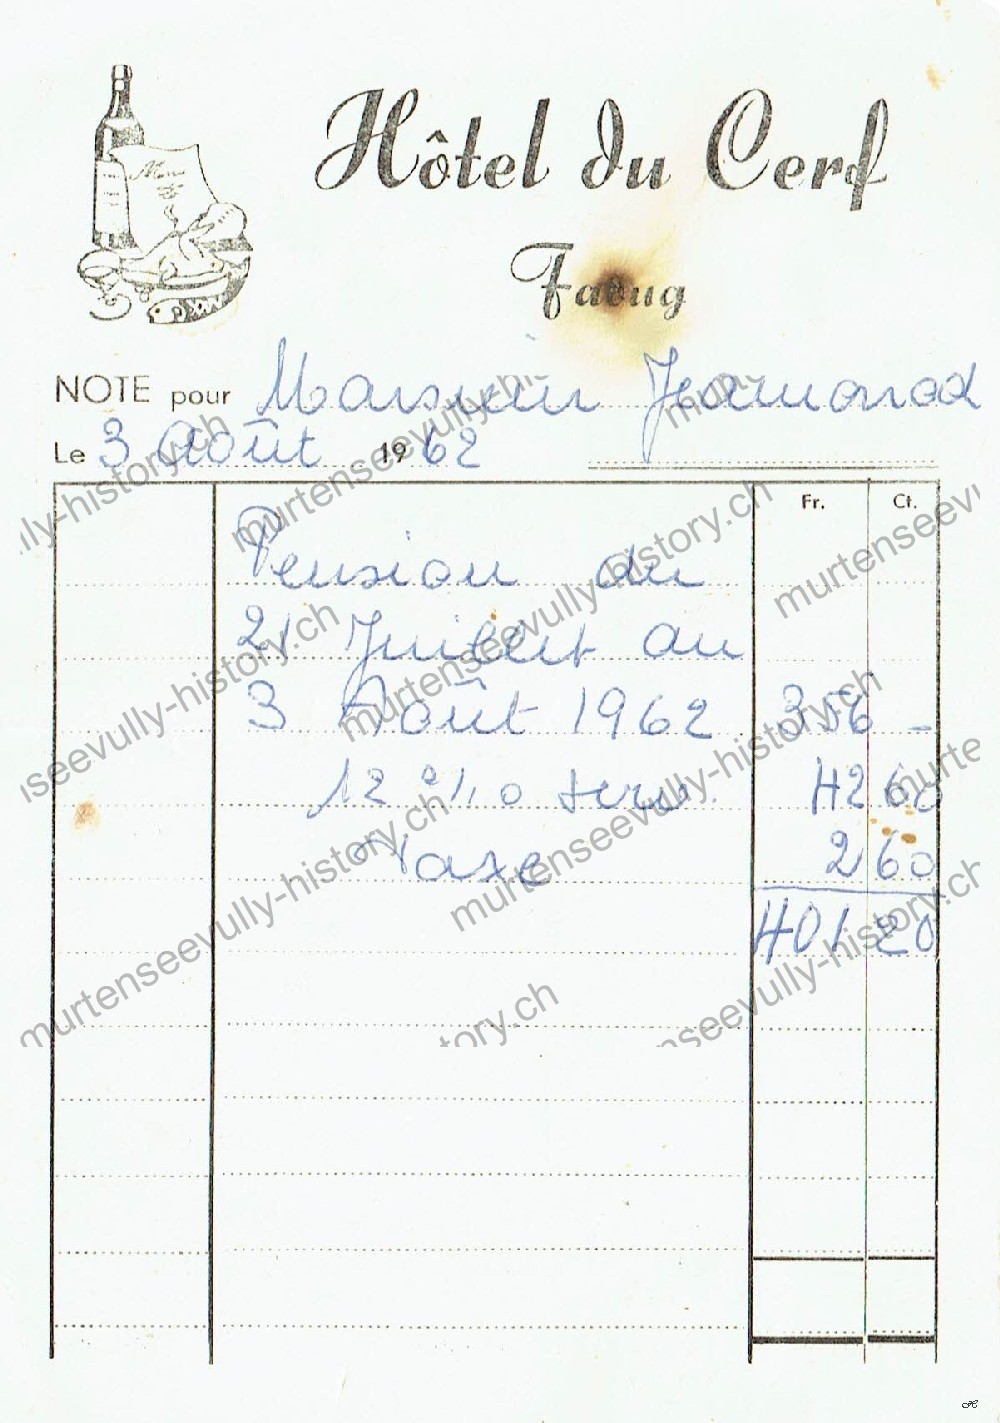 Hôtel du Cerf
Faoug
Menu
NOTE pour Monsieur
Le 3 Août 1962
Fr. Ct.
Pension du
21 Juillet au
3 Août 1962 356 -
12 %o serv. 42 60
Taxe 2 60
401.20
murtenseevully-history.ch